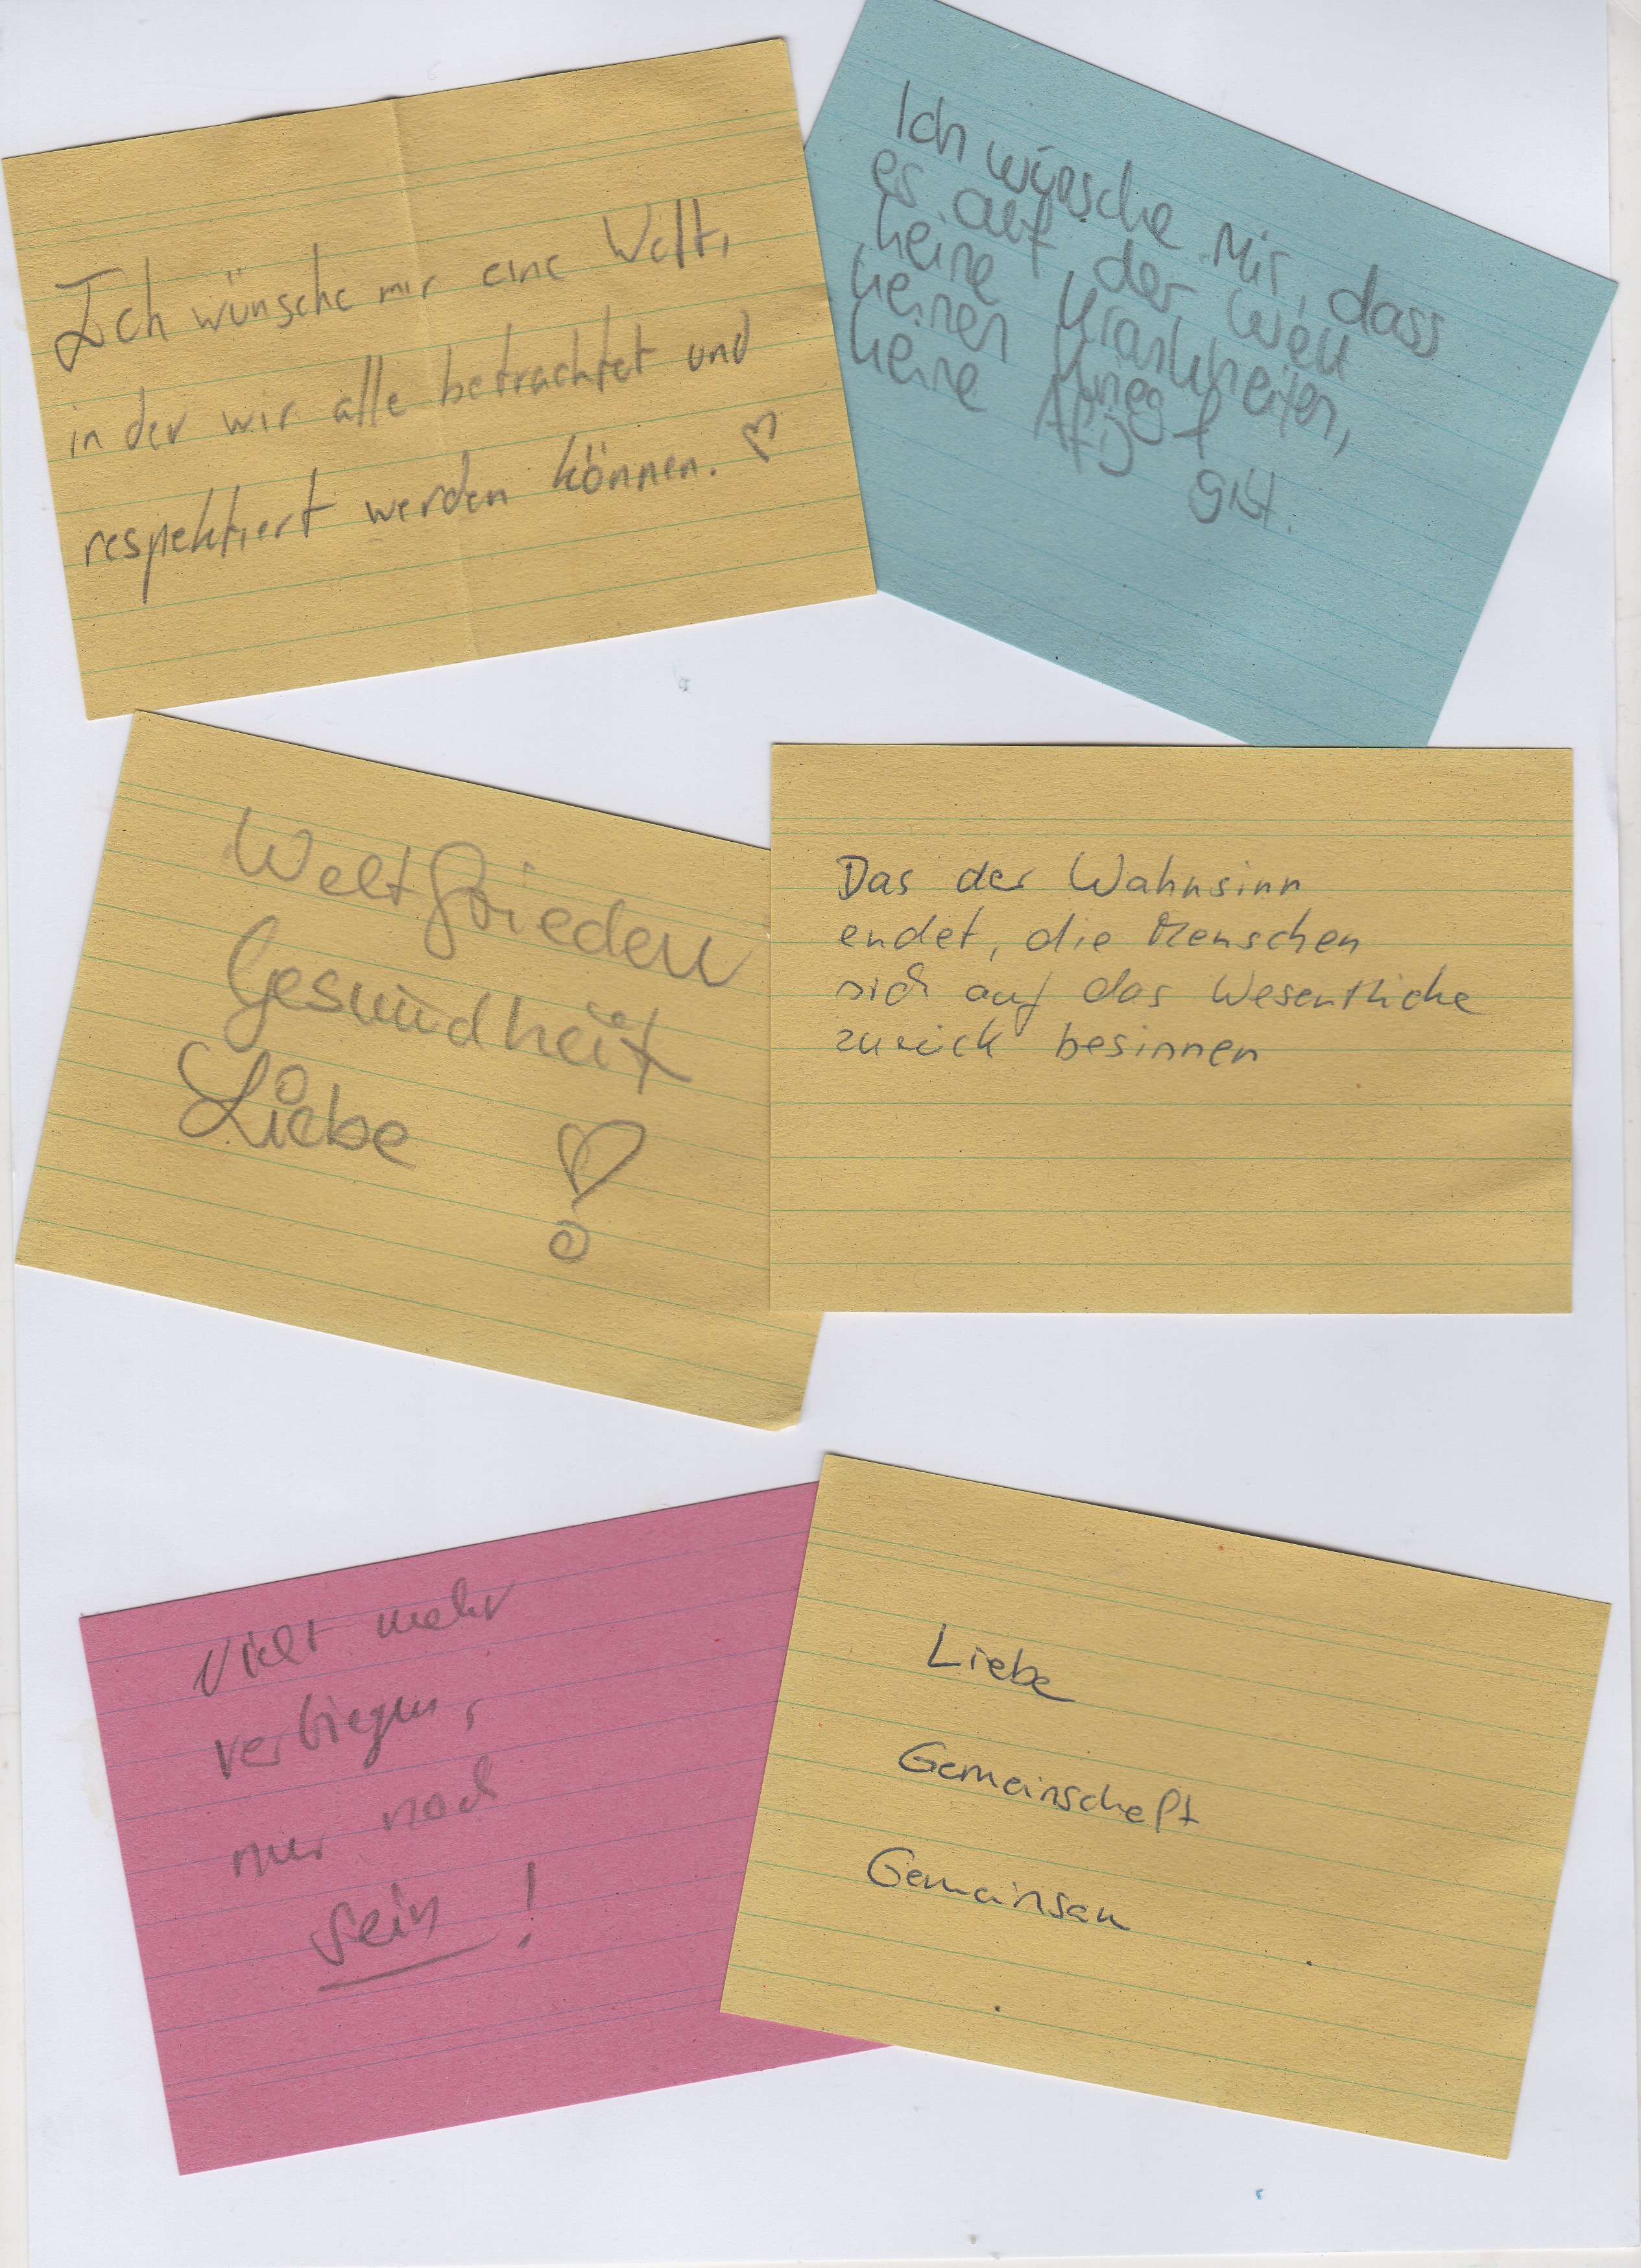 Ich wünsche mir eine Welt,
in der wir alle betrachtet und
respektiert werden können. ♡
Ich wünsche mir, dass
es auf der Welt
keine Krankheiten,
keinen Krieg +
keine AfD gibt.
Weltfrieden
Gesundheit
Liebe
Das der Wahnsinn
endet, die Menschen
sich auf das Wesentliche
zurück besinnen
Nicht mehr
verbiegen,
nur noch
sein!
Liebe
Gemeinschaft
Gemeinsam